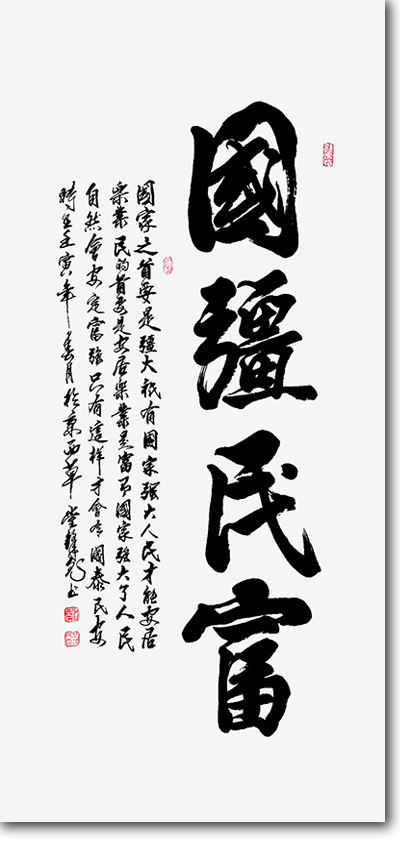 國彊民富
國家之首要是彊大祇有國家強大人民才能安居
樂業民的首要是安居樂業民富了國家強大了人民
自然會安定富強只有這样才會有國泰民安
時在壬寅年春月於京西草堂